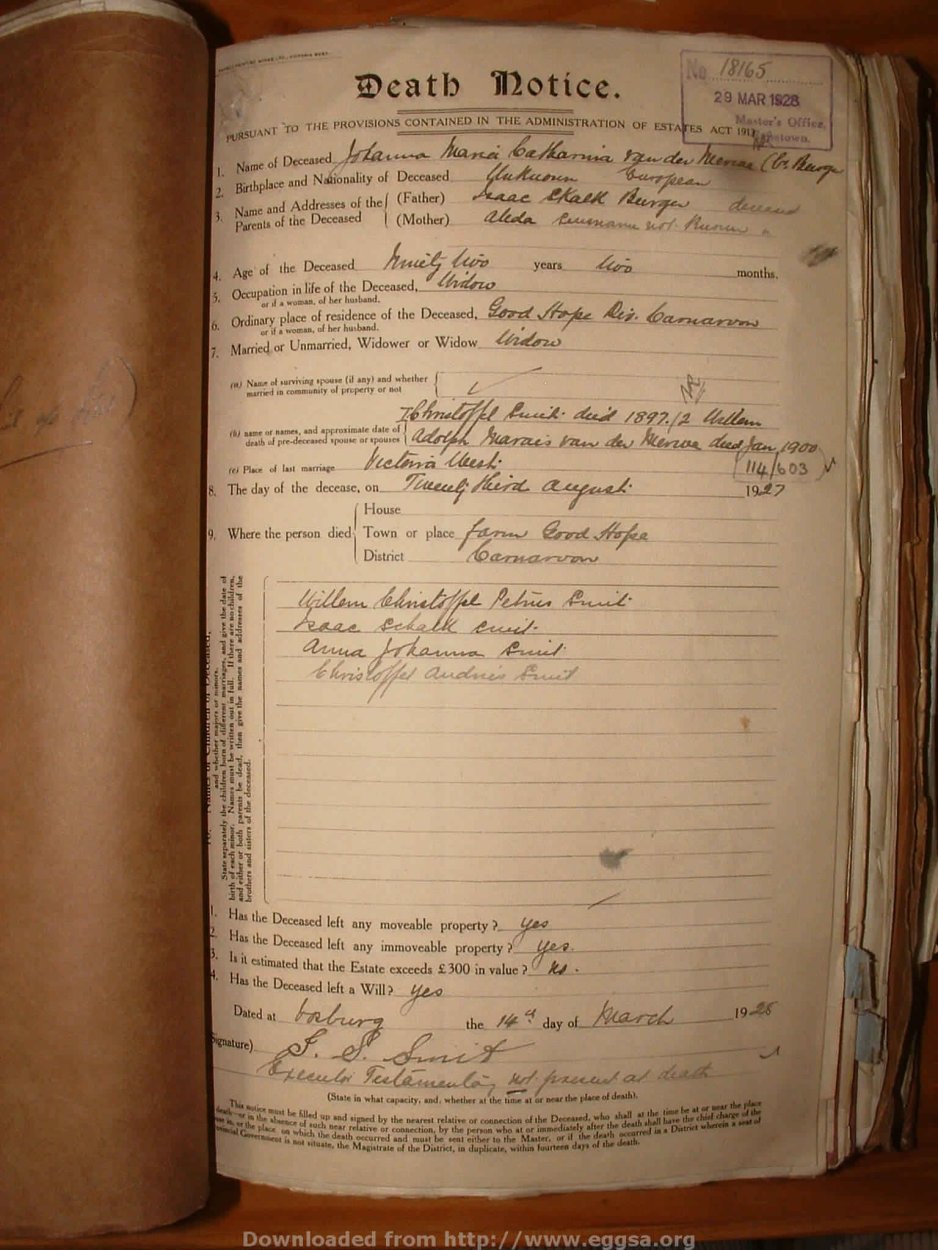 Death Notice.
No 18165
29 MAR 1928
Master's Office,
PURSUANT TO THE PROVISIONS CONTAINED IN THE ADMINISTRATION OF ESTATES ACT 1913
1. Name of Deceased Johanna Maria Catharina van der Merwe (b. Burger
2. Birthplace and Nationality of Deceased Unknown European
3. Name and Addresses of the Parents of the Deceased (Father) Isaac Skalk Burger deceased
(Mother) Aleda surname not known "
4. Age of the Deceased Ninety two years two months.
5. Occupation in life of the Deceased, Widow
or if a woman, of her husband.
6. Ordinary place of residence of the Deceased, Good Hope Div. Carnarvon
or if a woman, of her husband.
7. Married or Unmarried, Widower or Widow Widow
(a) Name of surviving spouse (if any) and whether
married in community of property or not
1 Christoffel Smit died 1897./2 Willem
(b) name or names, and approximate date of
death of pre-deceased spouse or spouses Adolph Marais van der Merwe died Jan 1900
114/603
(c) Place of last marriage Victoria West.
8. The day of the decease, on Twenty third August 1927
9. Where the person died House
Town or place farm Good Hope
District Carnarvon
10. Names of Children of Deceased,
and whether majors or minors.
State separately the children born of different marriages, and give the date of
birth of each minor. Names must be written out in full. If there are no children,
and either or both parents be dead, then give the names and addresses of the
brothers and sisters of the deceased.
Willem Christoffel Petrus Smit
Isaac Schalk Smit.
Anna Johanna Smit
Christoffel Andries Smit
1. Has the Deceased left any moveable property? yes
2. Has the Deceased left any immoveable property? yes.
3. Is it estimated that the Estate exceeds £300 in value? no.
4. Has the Deceased left a Will? yes
Dated at Vosburg the 14th day of March 1928
Signature) I. S. Smit
Executor Testamentary not present at death
(State in what capacity, and, whether at the time at or near the place of death).
This notice must be filled up and signed by the nearest relative or connection of the Deceased, who shall at the time be at or near the place
death—or in the absence of such near relative or connection, by the person who at or immediately after the death shall have the chief charge of the
house in, or the place on which the death occurred and must be sent either to the Master, or if the death occurred in a District wherein a seat of
Provincial Government is not situate, the Magistrate of the District, in duplicate, within fourteen days of the death.
Downloaded from http://www.eggsa.org